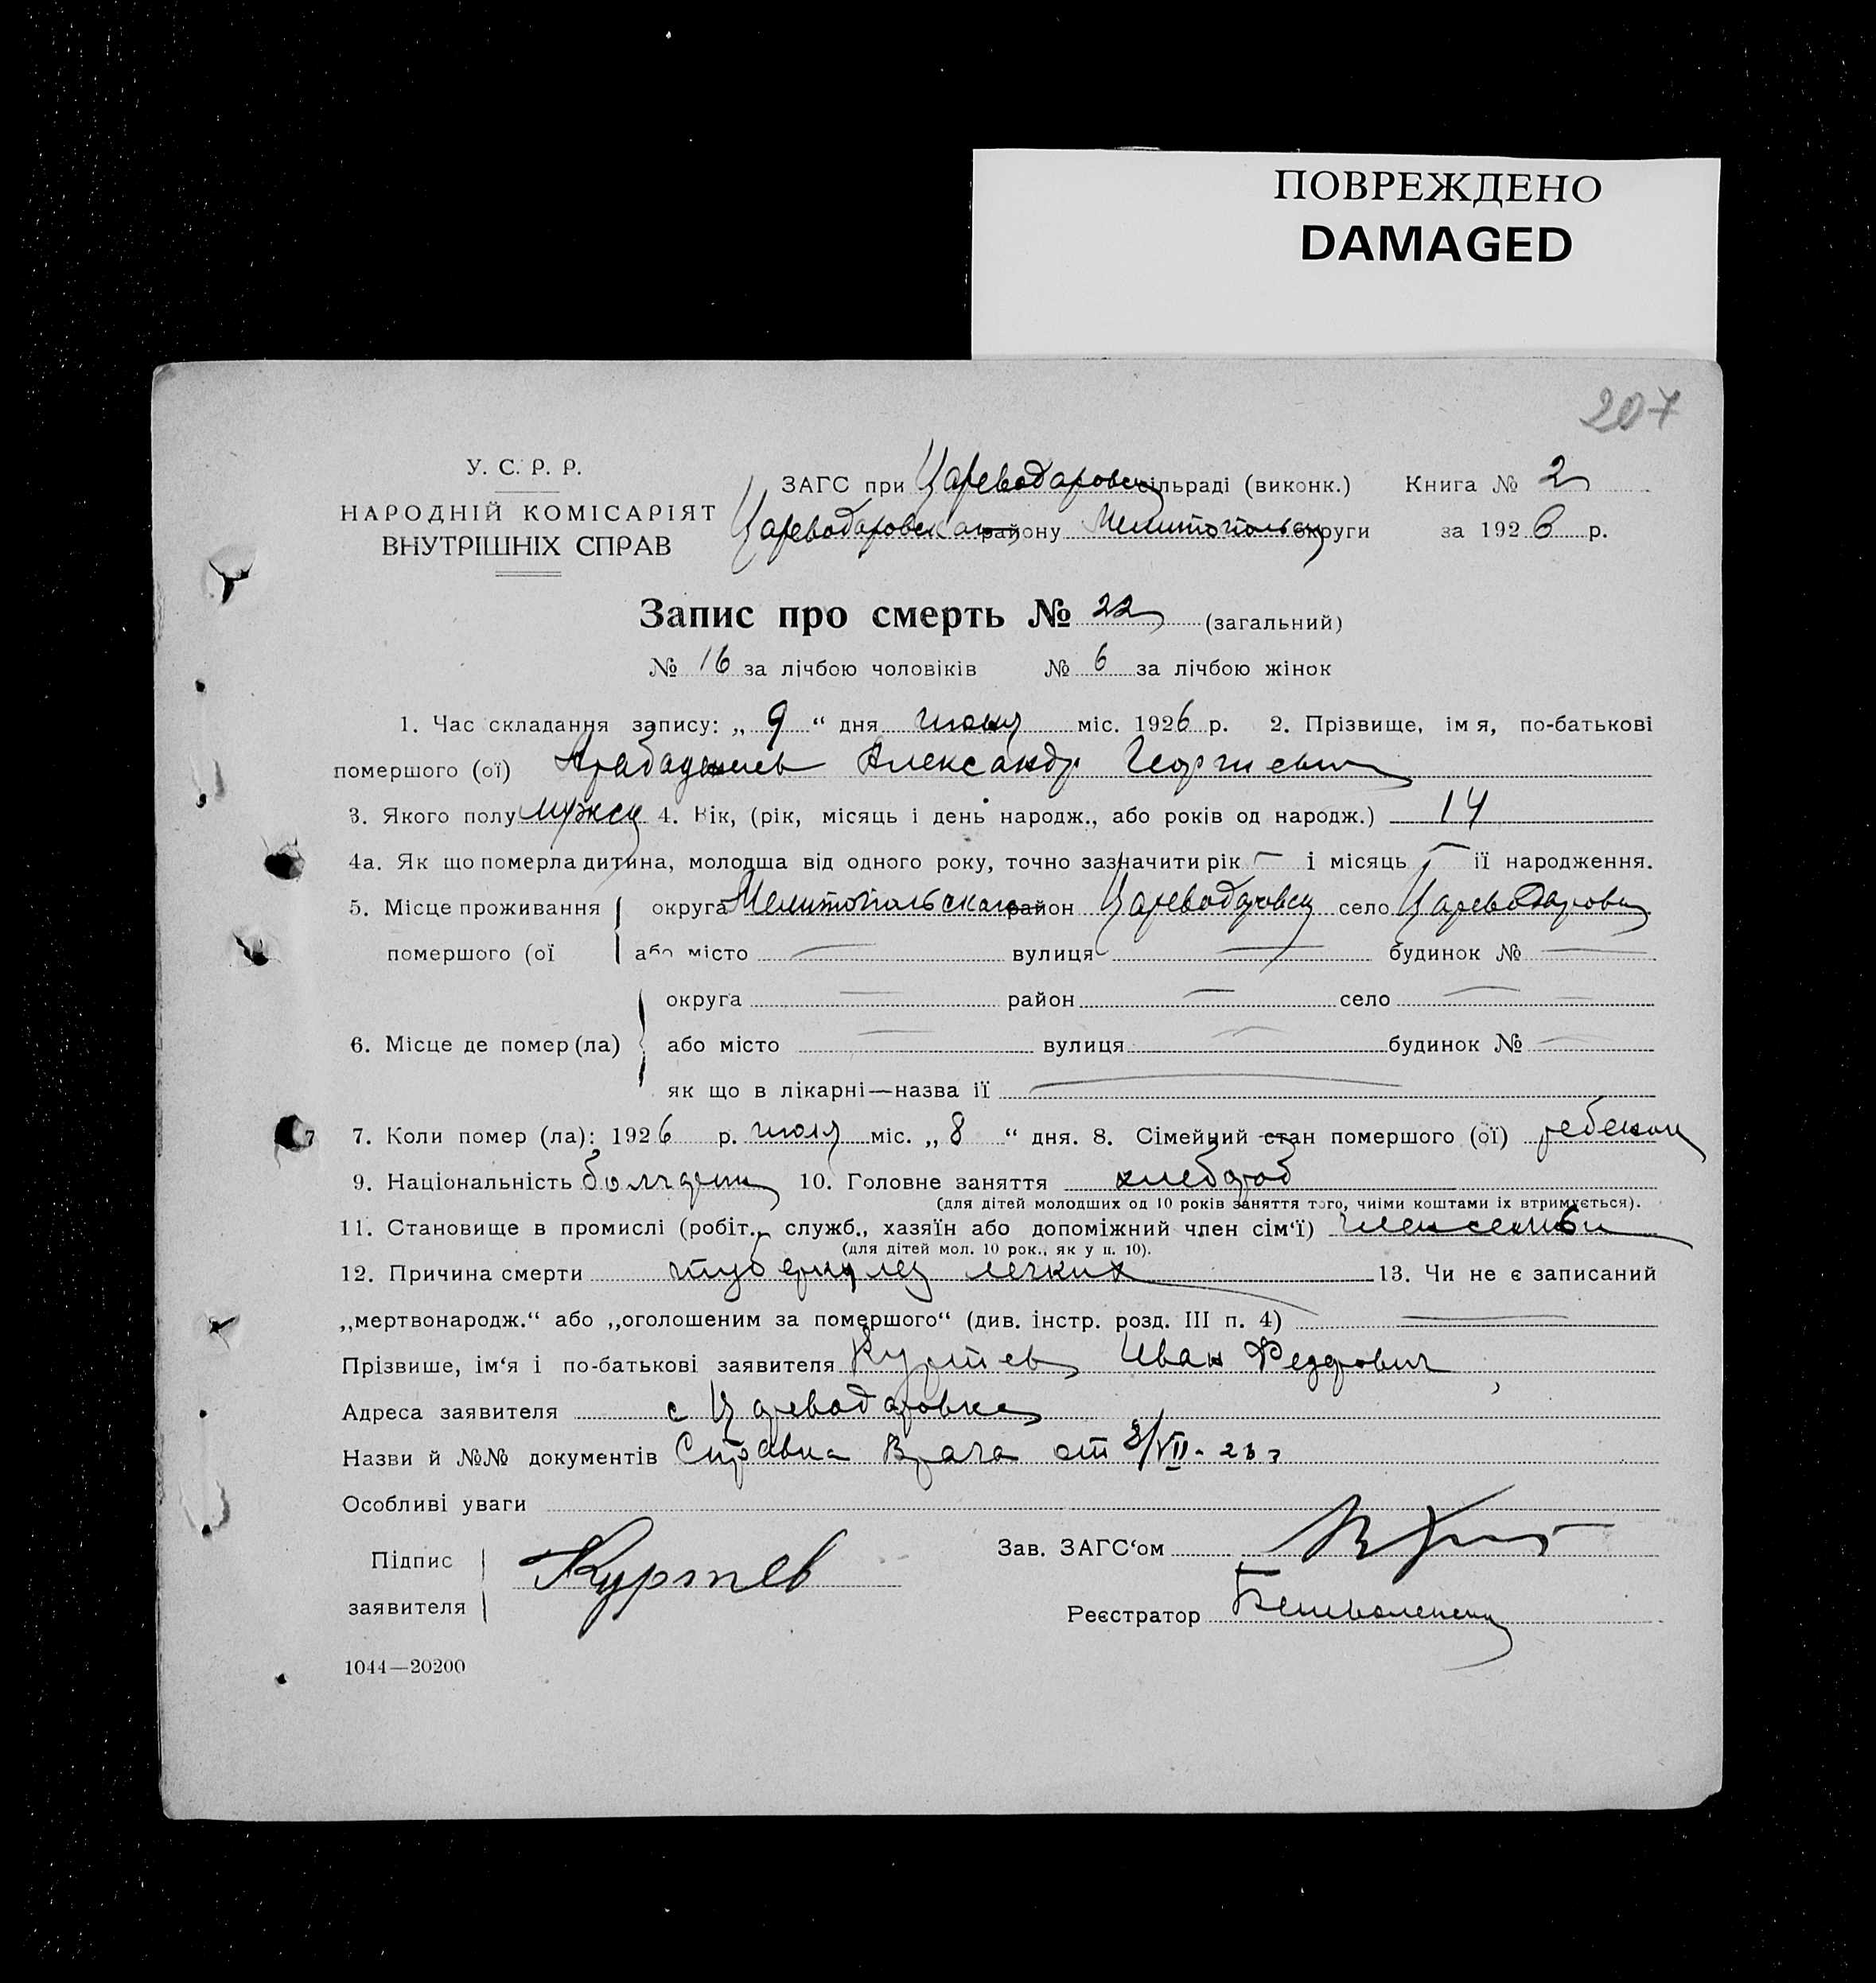 ПОВРЕЖДЕНО
DAMAGED
207
У. С. Р. Р.
НАРОДНІЙ КОМІСАРІЯТ
ВНУТРІШНІХ СПРАВ
ЗАГС при Цареводаровск сільраді (виконк.) Книга № 2
Цареводаровскаго району Мелитопольск округи за 1926 р.
Запис про смерть № 22 (загальний)
№ 16 за лічбою чоловіків № 6 за лічбою жінок
1. Час складання запису: „ 9 “ дня июля міс. 1926 р. 2. Прізвище, імя, по-батькові
помершого (ої) Арабаджиев Александр Георгиевич
3. Якого полу мужск 4. Вік, (рік, місяць і день народж., або років од народж.) 14
4а. Як що померла дитина, молодша від одного року, точно зазначити рік — і місяць — її народження.
5. Місце проживання округа Мелитопольскаго район Цареводаровск село Цареводаровк
помершого (ої або місто — вулиця — будинок № —
округа — район — село —
6. Місце де помер (ла) або місто — вулиця — будинок № —
як що в лікарні—назва її —
7. Коли помер (ла): 1926 р. июля міс. „ 8 “ дня. 8. Сімейний стан помершого (ої) ребенок
9. Національність болгарин 10. Головне заняття хлебороб
(для дітей молодших од 10 років заняття того, чиіми коштами їх втримується).
11. Становище в промислі (робіт., служб., хазяїн або допоміжний член сім‘ї) член семьи
(для дітей мол. 10 рок., як у п. 10).
12. Причина смерти туберкулез легких 13. Чи не є записаний
„мертвонародж.“ або „оголошеним за помершого“ (див. інстр. розд. III п. 4) —
Прізвише, ім‘я і по-батькові заявителя Куртев Иван Федорович
Адреса заявителя с Цареводаровка
Назви й №№ документів Справка Врача от 8/VII - 26 г
Особливі уваги
Підпис
заявителя
Куртев
Зав. ЗАГС‘ом
Реєстратор
1044—20200